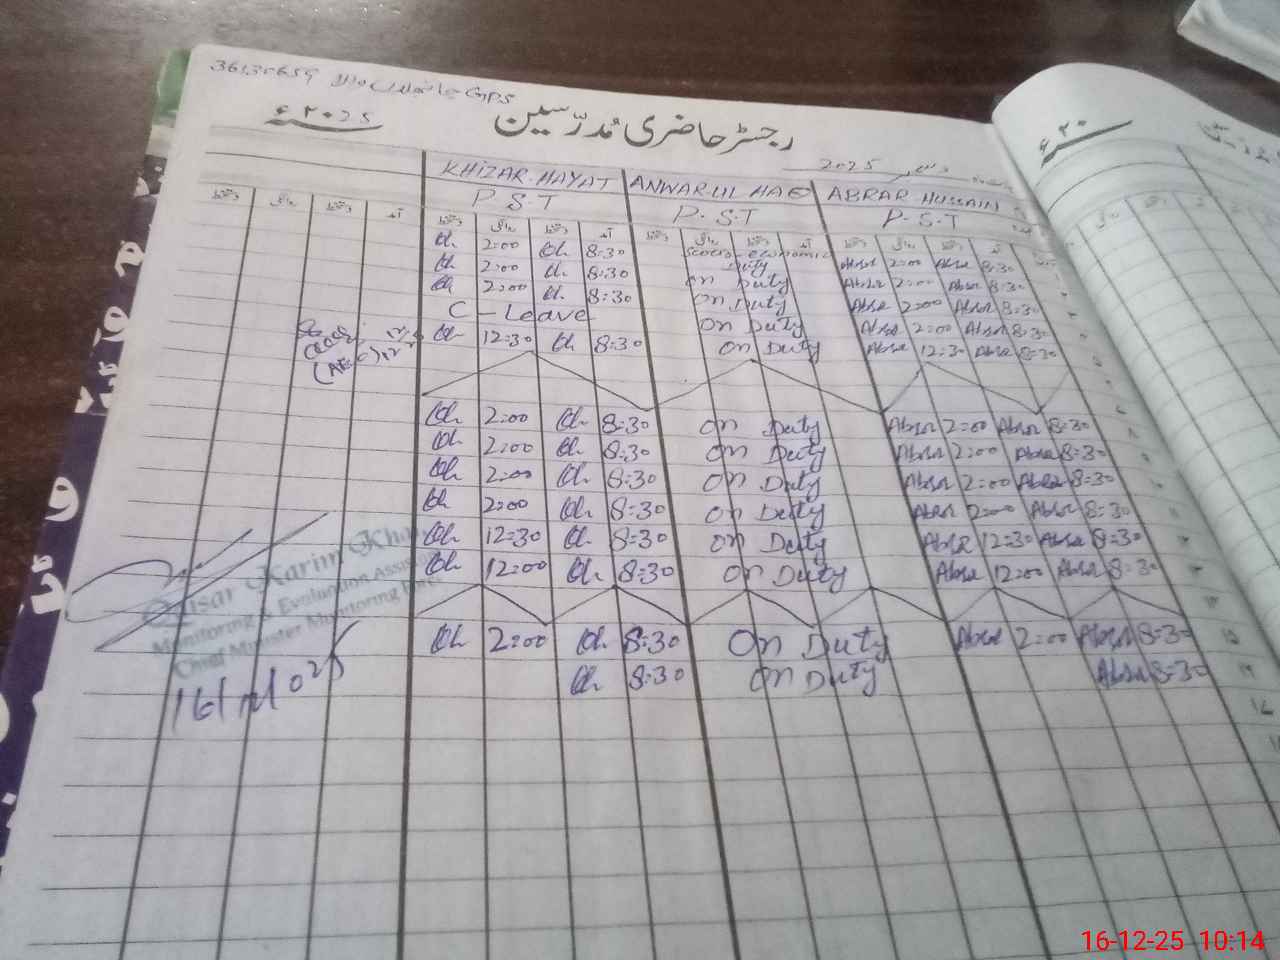 36130659 GPS
۲۰25ء
رجسٹر حاضری مُدرّسین
2025 دسمبر
۲۰ء
KHIZAR HAYAT ANWARUL HAQ ABRAR HUSSAIN
P.S.T P.S.T P.S.T
دستخط روانگی دستخط آمد دستخط روانگی دستخط آمد دستخط روانگی دستخط آمد دستخط روانگی دستخط آمد
Kh 2:00 Kh 8:30 Socio-economic Duty Absar 2:00 Absar 8:30
Kh 2:00 Kh 8:30 on Duty Absar 2:00 Absar 8:30
Kh 2:00 Kh 8:30 on Duty Absar 2:00 Absar 8:30
C - Leave on Duty Absar 2:00 Absar 8:30
Kh 12:30 Kh 8:30 on Duty Absar 12:30 Absar 8:30
(AEO)
Kh 2:00 Kh 8:30 on Duty Absar 2:00 Absar 8:30
Kh 2:00 Kh 8:30 on Duty Absar 2:00 Absar 8:30
Kh 2:00 Kh 8:30 on Duty Absar 2:00 Absar 8:30
Kh 2:00 Kh 8:30 on Duty Absar 2:00 Absar 8:30
Kh 12:30 Kh 8:30 on Duty Absar 12:30 Absar 8:30
Kh 12:00 Kh 8:30 on Duty Absar 12:00 Absar 8:30
Kh 2:00 Kh 8:30 On Duty Absar 2:00 Absar 8:30
Kh 8:30 on Duty Absar 8:30
Qaisar Karim Khan
Monitoring & Evaluation Assistant
Chief Minister Monitoring Force
16-12-25 10:14